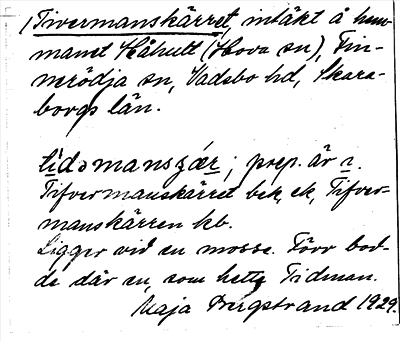 1 Tivermanskärret, intäkt å hem-
manet Håhult (Hova sn), Fin-
nerödja sn, Vadsbo hd, Skara-
borgs län.
tidəmansɟær; prep. är ɪ.
Tifvermanskärret bek, ek, Tifver-
manskärren kb.
Ligger vid en mosse. Förr bod-
de där en, som hette Tidman.
Maja Bergstrand 1929.